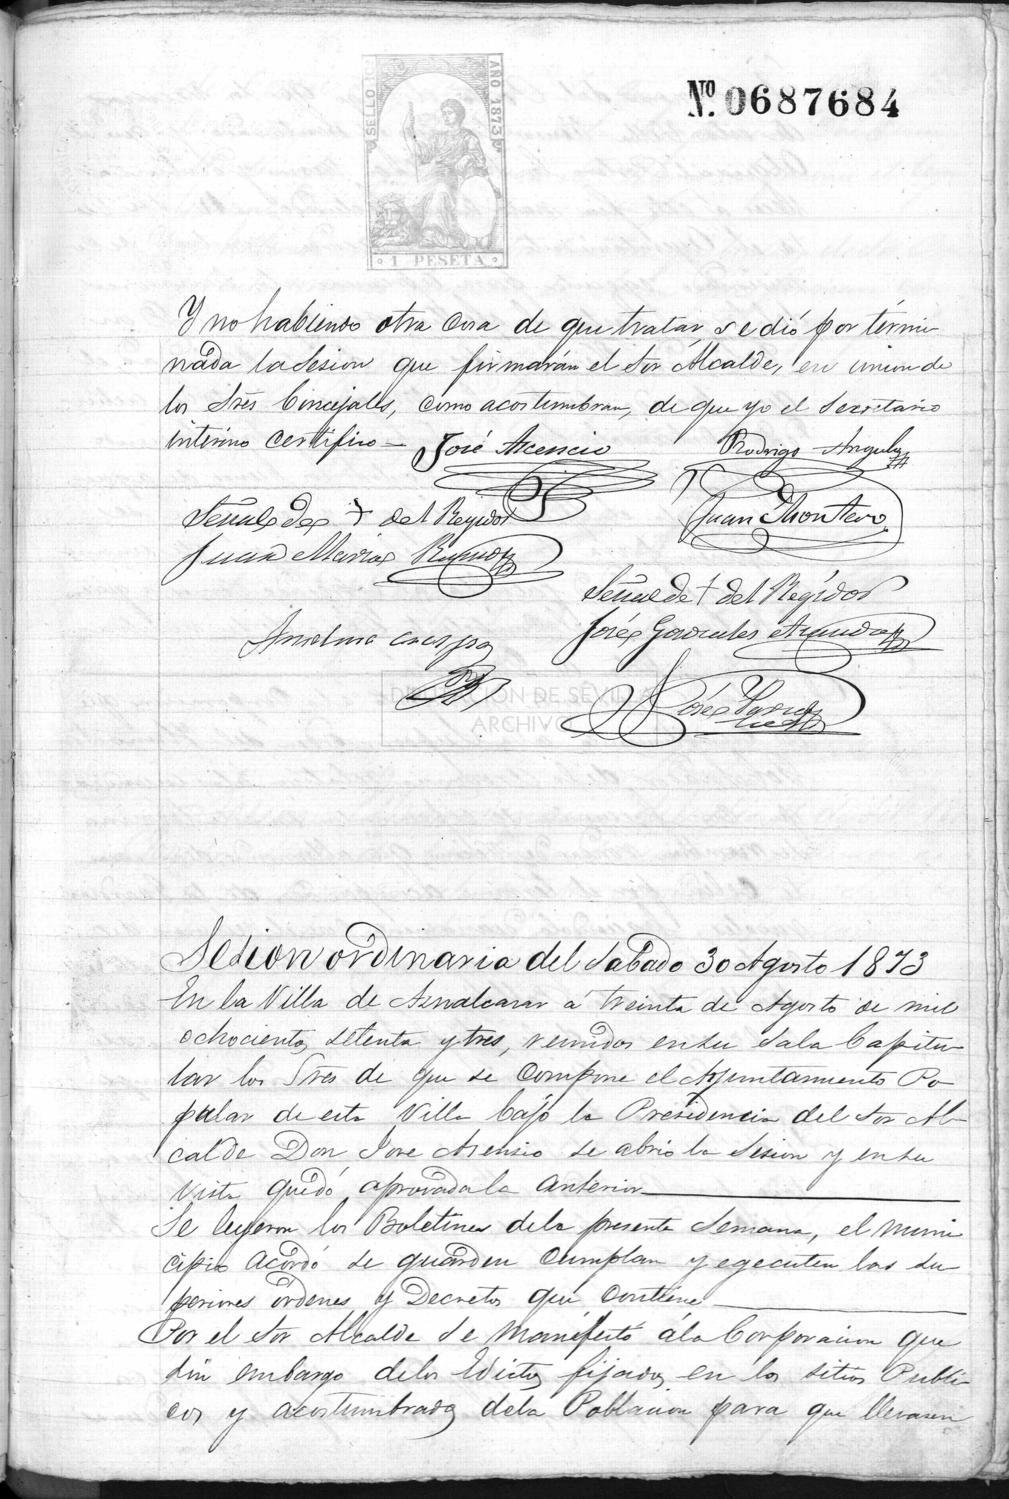 Nº. 0687684
SELLO 11º
AÑO 1873
1 PESETA
Y no habiendo otra cosa de que tratar se dió por térmi-
nada la Sesion que firmarán el Sor Alcalde, en union de
los Sres Concejales, como acostumbran, de que yo el Secretario
interino certifico—
José Acencio
Rodrigo Angulo
Señal de + del Regidor
Juan Montero
Juan Maria
Señal de + del Regidor
José Gonzales
Anselmo Crespo
DIPUTACIÓN DE SEVILLA
ARCHIVO
José
Sesion ordinaria del Sabado 30 Agosto 1873
En la Villa de Aznalcazar á treinta de Agosto de mil
ochocientos setenta y tres, reunidos en su Sala Capitu-
lar los Sres de que se compone el Ayuntamiento Po-
pular de esta Villa bajo la Presidencia del Sor Al-
calde Don Jose Asensio se abrió la Sesion y en su
vista quedó aprovada la anterior
Se leyeron los Boletines dela presente Semana, el muni
cipio acordó se guarden cumplan y egecuten las su-
periores órdenes y Decretos que contiene
Por el Sor Alcalde se manifestó ála Corporacion que
sin embargo delos Edictos fijados en los sitios Publi-
cos y acostumbrados dela Poblacion para que llevasen